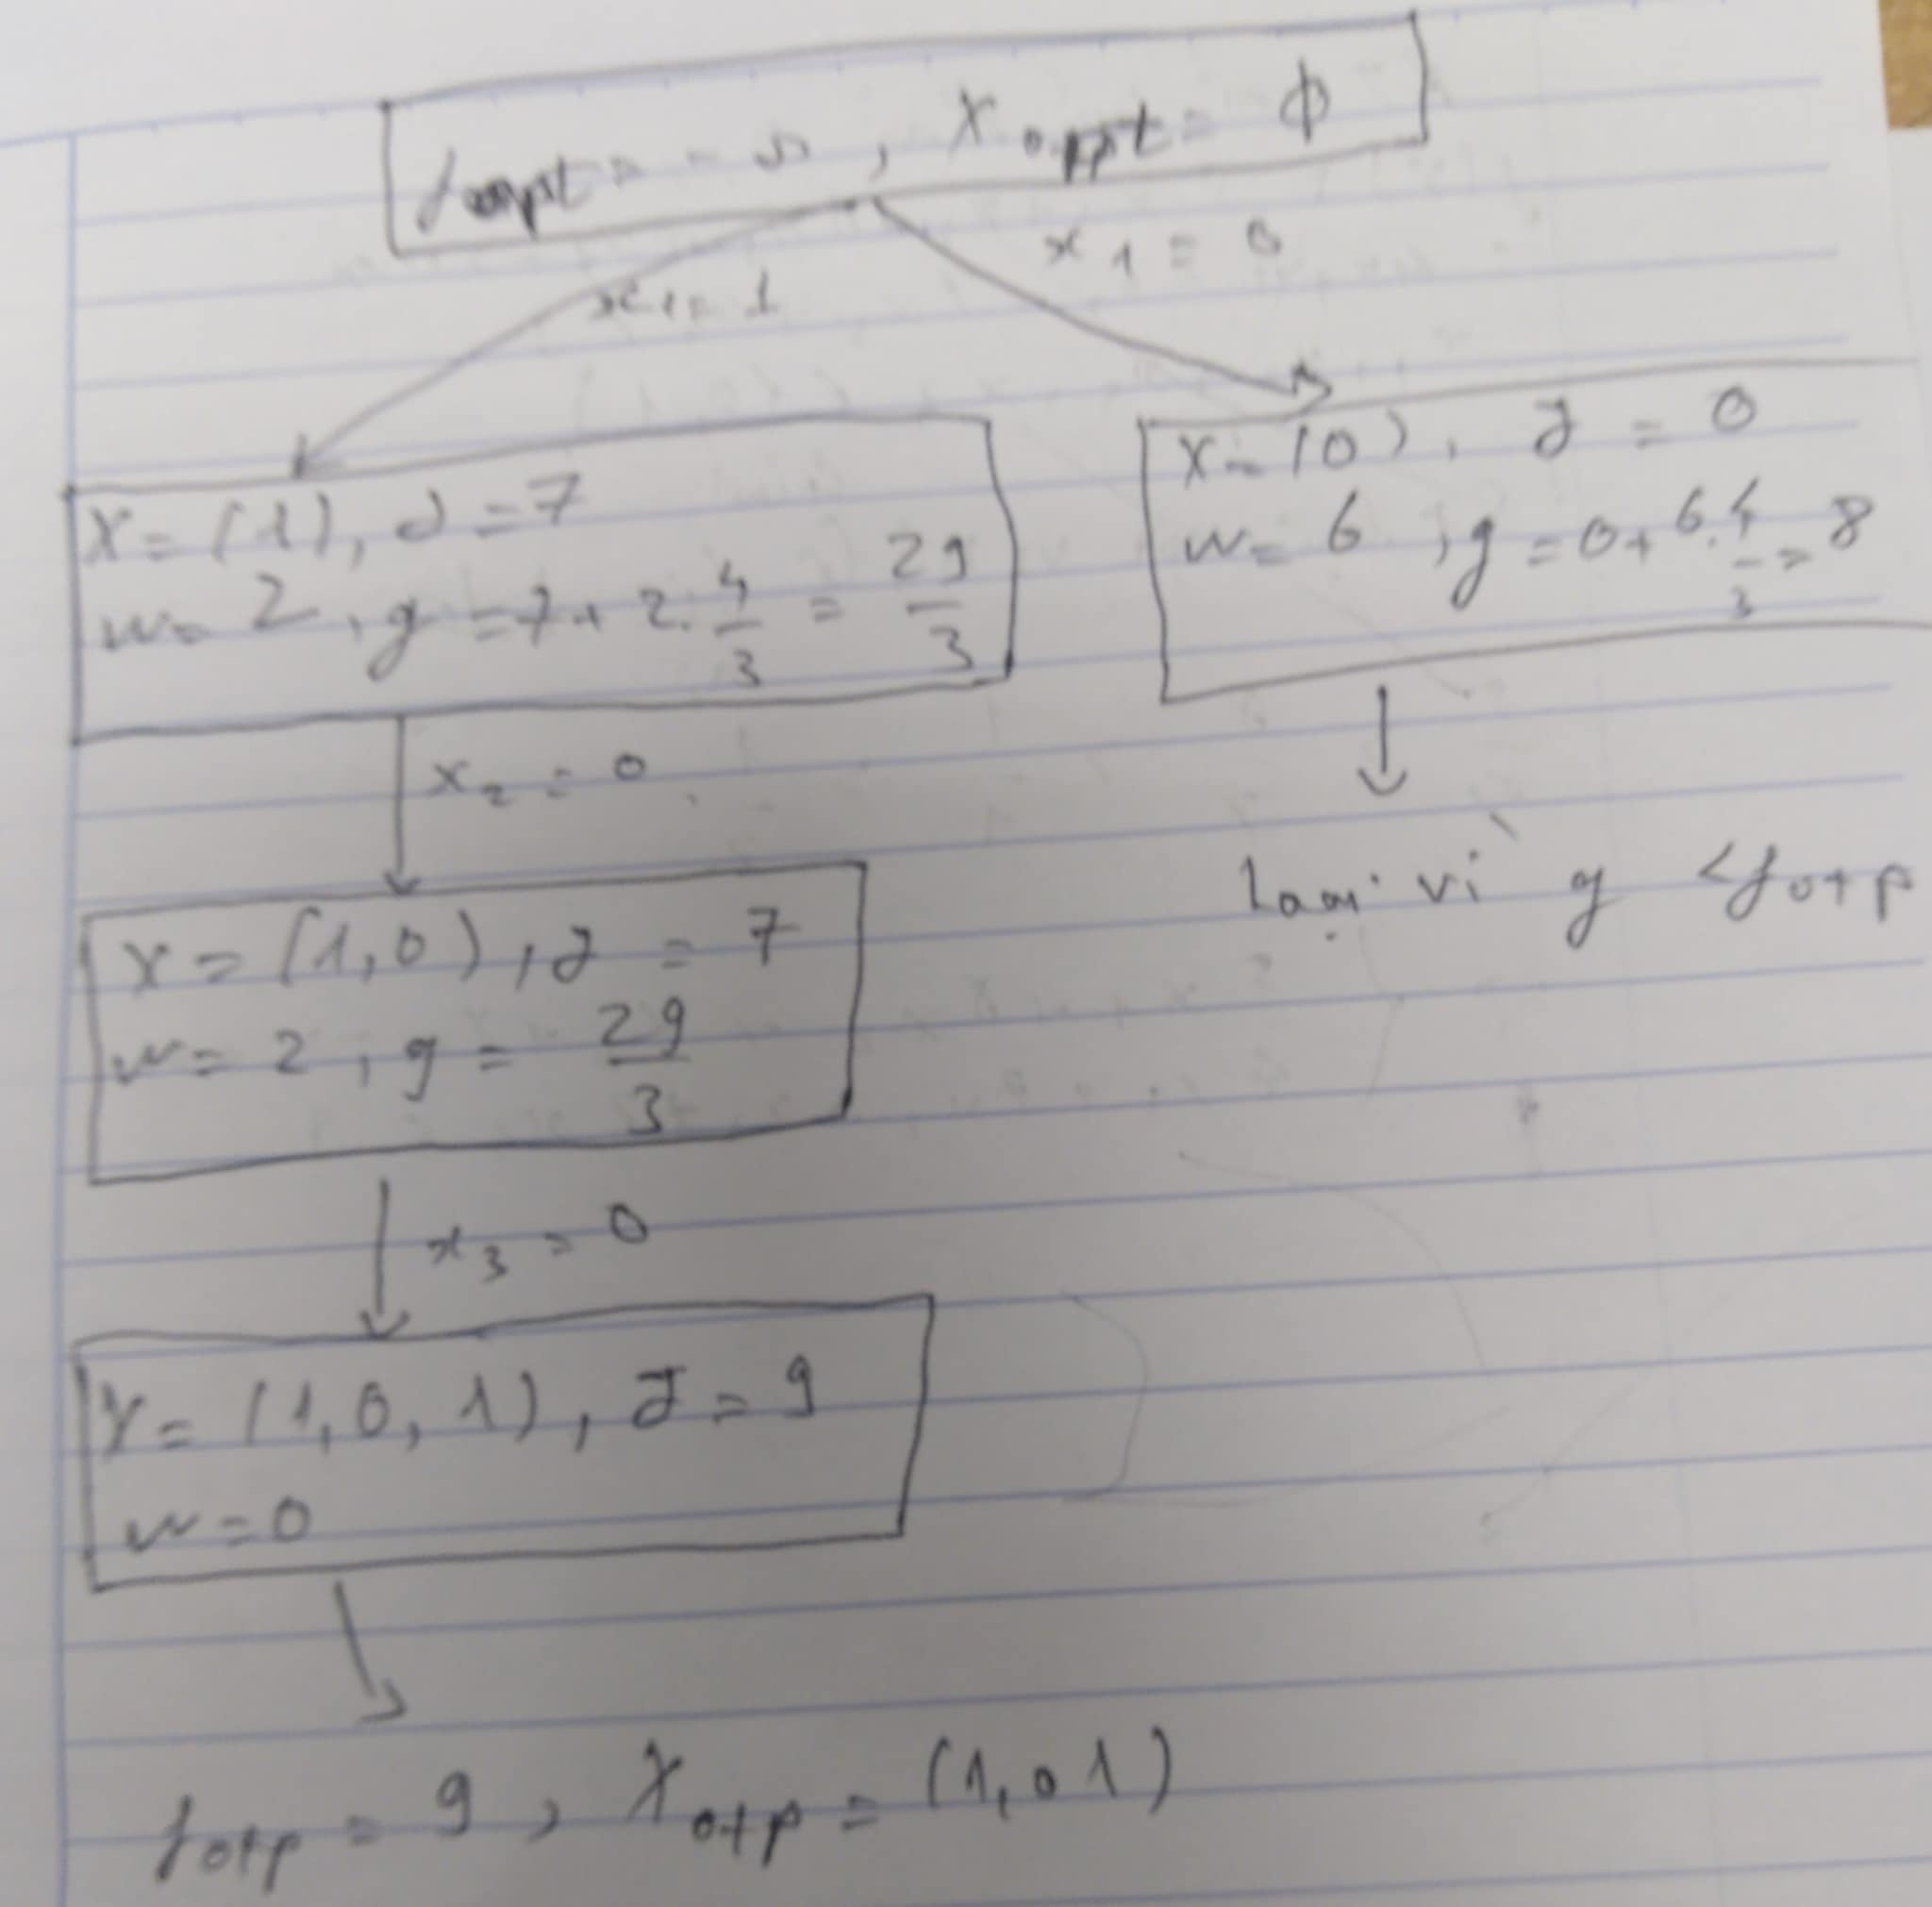 fopt = -∞, Xopt = ϕ
x₁ = 1
x₁ = 0
X = (1), J = 7
w = 2, g = 7 + 2. 4/3 = 29/3
X = (0), J = 0
w = 6, g = 0 + 6. 4/3 = 8
x₂ = 0
Loại vì g < fotp
X = (1,0), J = 7
w = 2, g = 29/3
x₃ = 0
X = (1, 0, 1), J = 9
w = 0
fotp = 9, Xotp = (1,0 1)